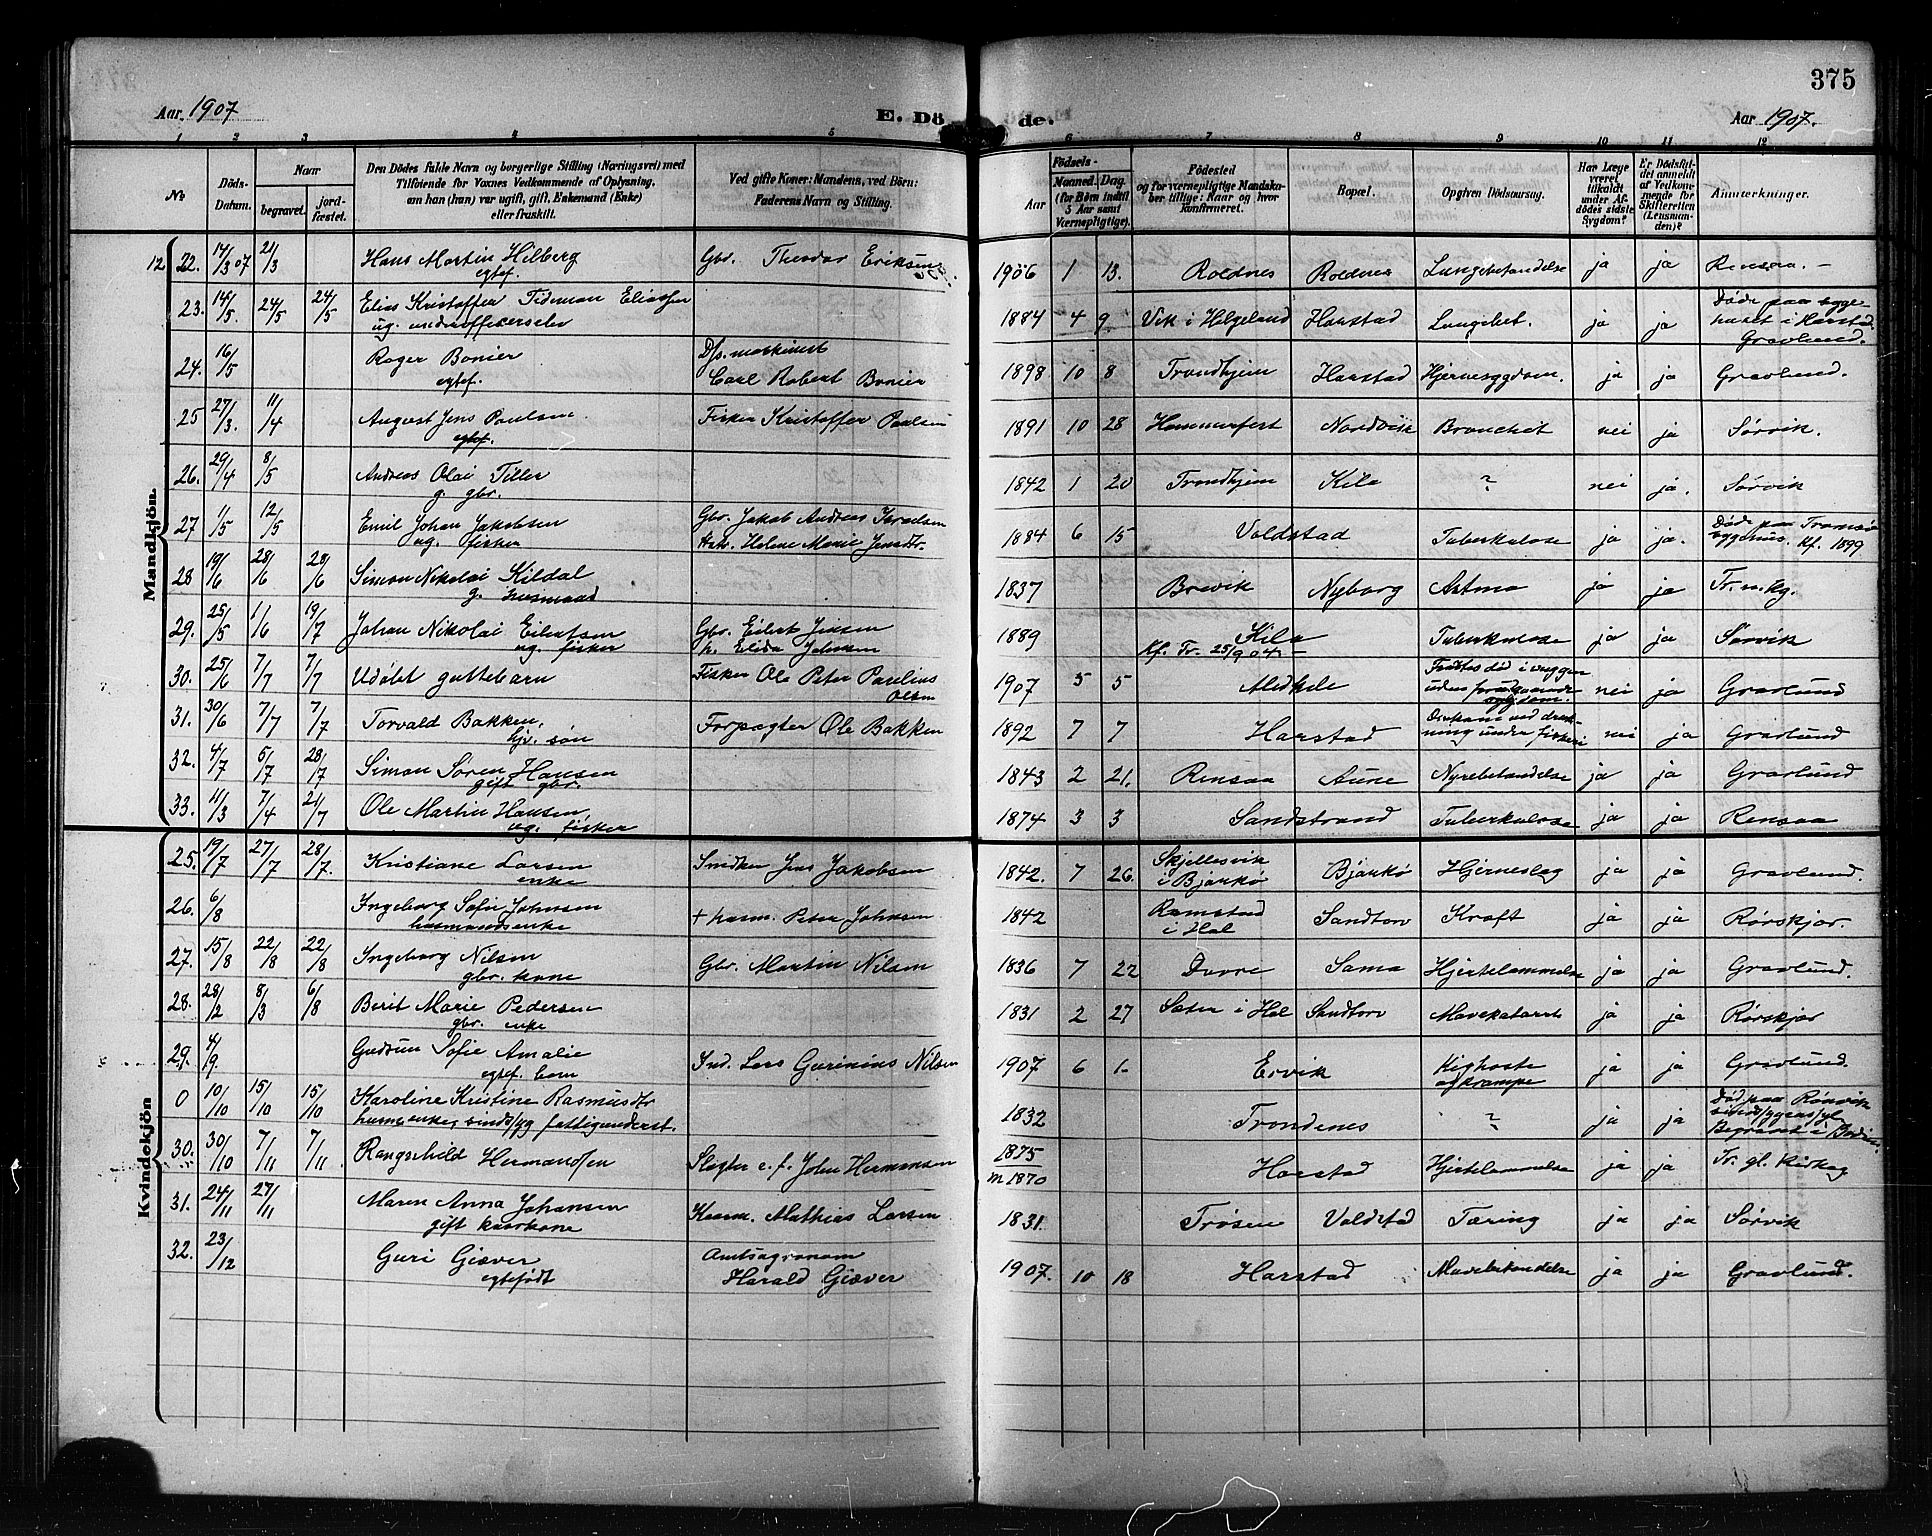 375
Aar 1907 E. Dö de. Aar 1907.
1 2 3 4 5 6 7 8 9 10 11 12
No
Döds-Datum.
Naar
begravet.
jord-fæstet.
Den Dödes fulde Navn og borgerlige Stilling (Næringsvei) med
Tilföiende for Voxnes Vedkommende af Oplysning,
om han (hun) var ugift, gift, Enkemand (Enke)
eller fraskilt.
Ved gifte Koner: Mandens, ved Börn:
Faderens Navn og Stilling.
Födsels-
Aar
Maaned. Dag.
(for Börn indtil
5 Aar samt
Værnepligtige).
Födested
og for værnepligtige Mandska-
ber tillige: Naar og hvor
konfirmeret.
Bopæl.
Opgiven Dödsaarsag.
Har Læge
været
tilkaldt
under Af-
dödes sidste
Sygdom?
Er Dödsfal-
det anmeldt
af Vedkom-
mende for
Skifteretten
(Lensman-
den)?
Anmærkninger.
Mandkjön.
12 22. 17/3 07 21/3 Hans Martin Hilberg Gbr. Theodor Eriksen 1906 1 13. Roldnes Roldnes Lungebetændelse ja ja Rensaa. -
egtef.
23. 14/5. 24/5 24/5 Elias Kristoffer Tideman Eliassen 1884 4 9 Vik i Helgeland Harstad Lungebet. ja ja Døde paa syge-
ug. underofficerselev huset i Harstad.
Gravlund.
24. 16/5 Roger Bonier Dfs. maskinist 1898 10 8 Trondhjem Harstad Hjernesygdom. ja ja Gravlund.
egtef. Carl Robert Bonier
25 27/3. 11/4 August Jens Paulsen Fisker Kristoffer Paulsen 1891 10 28 Hammerfest Nordvik Bronchit nei ja Sørvik.
egtef.
26. 29/4 8/5 Andreas Olai Tiller 1842 1 20 Trondhjem Kila ? nei ja. Sørvik
g. gbr.
27 11/5 12/5 Emil Johan Jakobsen Gbr. Jakob Andreas Israelsen 1884 6 15 Voldstad Tuberkulose ja ja. Døde paa Tromsø
ug. fisker Helene Marie Jensdtr. sygehus. Kf. 1899
28 19/6 28/6 28/6 Simon Nikolai Kildal 1837 Brevik Nyborg Astma ja ja Tr. n. kg.
g. husmand
29. 25/5 1/6 19/7 Johan Nikolai Eilertsen Gbr. Eilert Jensen 1889 Kila Tuberkulose ja ja Sørvik
ug. fisker h. Elida Johnsen Kf. Tr. 25/9 04 -
30. 25/6 7/7 7/7 Udøbt guttebarn Fisker Ole Peter Parelius 1907 5 5 Medkile Fandtes død i vuggen nei ja Gravlund
Olsen uden forudgaaende
sygdom.
31. 30/6 7/7 7/7 Torvald Bakken, Forpagter Ole Bakken 1892 7 7 Harstad Omkom ved druk- nei ja Gravlund
hjv. søn ning under fiskeri
32. 4/7 6/7 28/7 Simon Søren Hansen 1843 2 21. Rensaa Aune Nyrebetændelse ja ja Gravlund
gift gbr.
33. 11/3 7/4 21/7 Ole Martin Hansen 1874 3 3 Sandstrand Tuberkulose ja ja Rensaa
ug. fisker
Kvindekjön
25. 19/7 27/7 28/7. Kristiane Larsen Snidker Jens Jakobsen 1842. 7 26. Skjellesvik Bjarkö Hjerneslag ja ja Gravlund.
enke i Bjarkö
26. 6/8 Ingeborg Sofie Johnsen + husm. Peter Johnsen 1842 Ramstad Sandtorv Kræft ja ja Rørskjær.
husmandsenke i Hol
27. 15/8 22/8 22/8 Ingeborg Nilsen Gbr. Martin Nilsen 1836 7 22 Dovre Sama Hjertelammelse ja ja Gravlund.
gbr. kone
28. 28/2 8/3 6/8 Berit Marie Pedersen 1831 2 27 Sæter i Hol Sandtorv Mavekatarrh ja ja Rørskjær
gbr. enke
29. 4/9. Gudrun Sofie Amalie Ind. Lars Gurinius Nilsen 1907 6 1 Ervik Kighoste ja ja Gravlund.
egtef. barn og krampe
0 10/10 15/10 15/10 Karoline Kristine Rasmusdtr 1832 Trondenes ? ja ja Død paa Rönvik
husm.enke, sindssyg fattigunderst. sindssygeasyl
Begravet i Bodin.
30. 30/10 7/11 7/11. Rangschild Hermandsen Slagter e. f. John Hermansen 1875 Harstad Hjertelammelse ja ja Tr. gl. Kirkeg
m 1870
31. 24/11 27/11 Maren Anna Johansen Kaarm. Mathias Larsen 1831. Trøsen Voldstad Tæring ja ja Sørvik
gift kaarkone
32. 23/12 Guri Giæver Amtsagronom 1907. 10 18 Harstad Mavebetændelse ja ja Gravlund.
egtefødt Harald Giæver